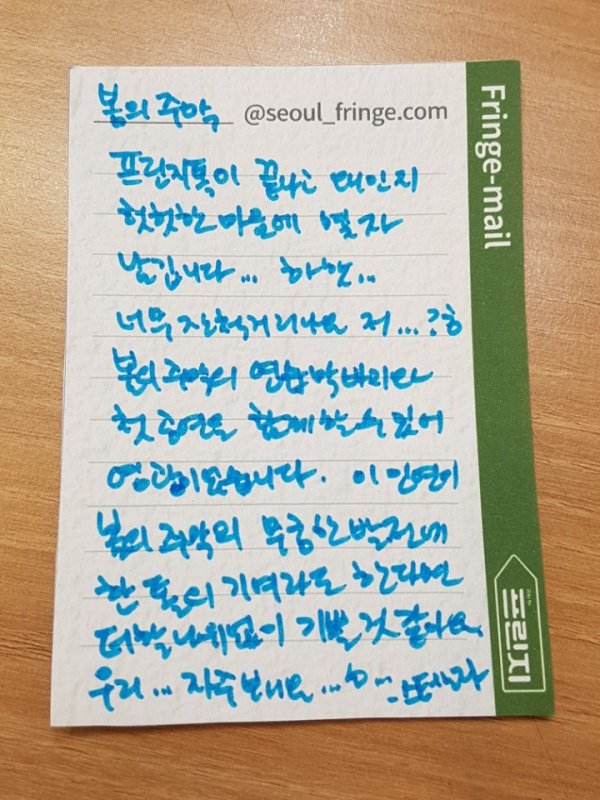 봄의 주막 @seoul_fringe.com
프린지톡이 끝나는 때인지
헛헛한 마음에 몇 자
남깁니다... 하핫...
너무 질척거리나요 저...?ㅎ
봄의 주막의 연습 막바지와
첫 공연을 함께할 수 있어
영광이었습니다. 이 인연이
봄의 주막의 무궁한 발전에
한 톨의 기여라도 한다면
더할 나위없이 기쁠 것 같아요.
우리... 자주 보네요...ㅎ...
Fringe-mail
프린지